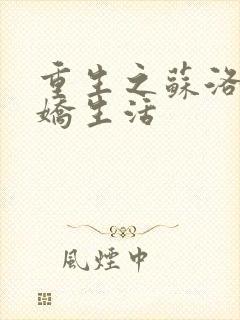 重生之蘇洛
嬌生活
風煙中